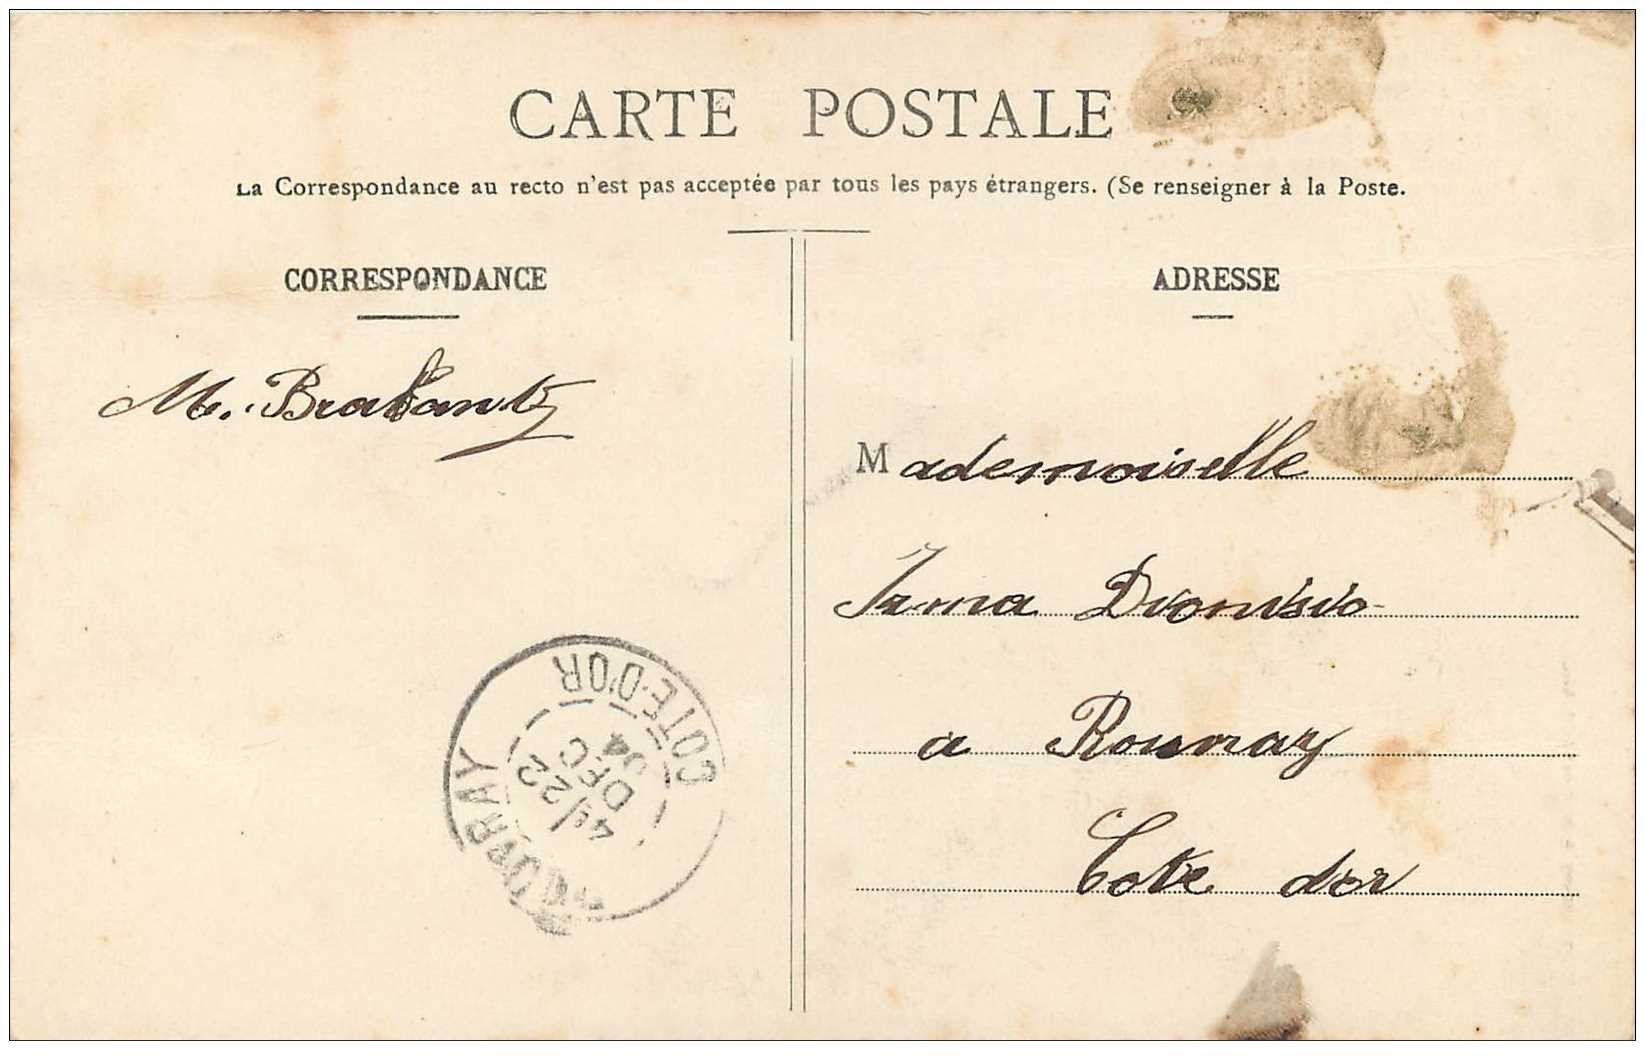 CARTE POSTALE
La Correspondance au recto n'est pas acceptée par tous les pays étrangers. (Se renseigner à la Poste.
CORRESPONDANCE
ADRESSE
M. Brabant
Mademoiselle
Irma Dionisio
a Rouvray
Cote dor
ROUVRAY
COTE-D'OR
4E/22
DEC
04